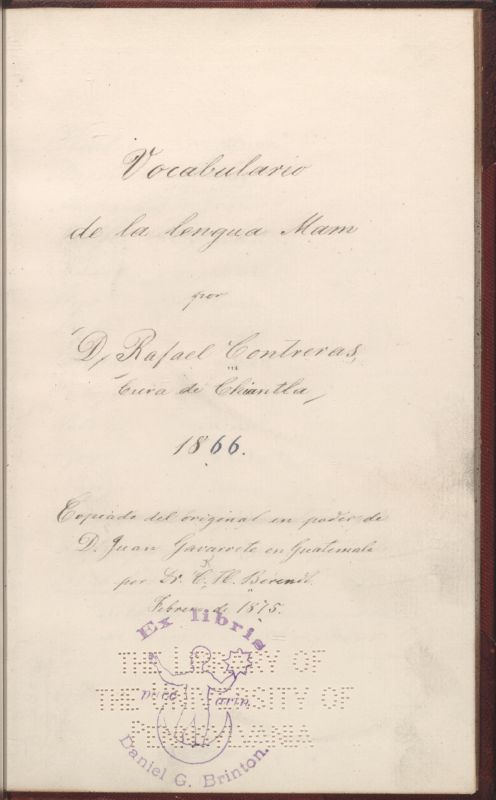 Vocabulario
de la lengua Mam
por
D. Rafael Contreras,
Cura de Chiantla,
1866.
Copiado del original en poder de
D. Juan Gavarrete en Guatemala
por Dr. C. H. Berendt.
Febrero de 1875.
Ex libris
THE LIBRARY OF
THE UNIVERSITY OF
PENNSYLVANIA
Daniel G. Brinton.